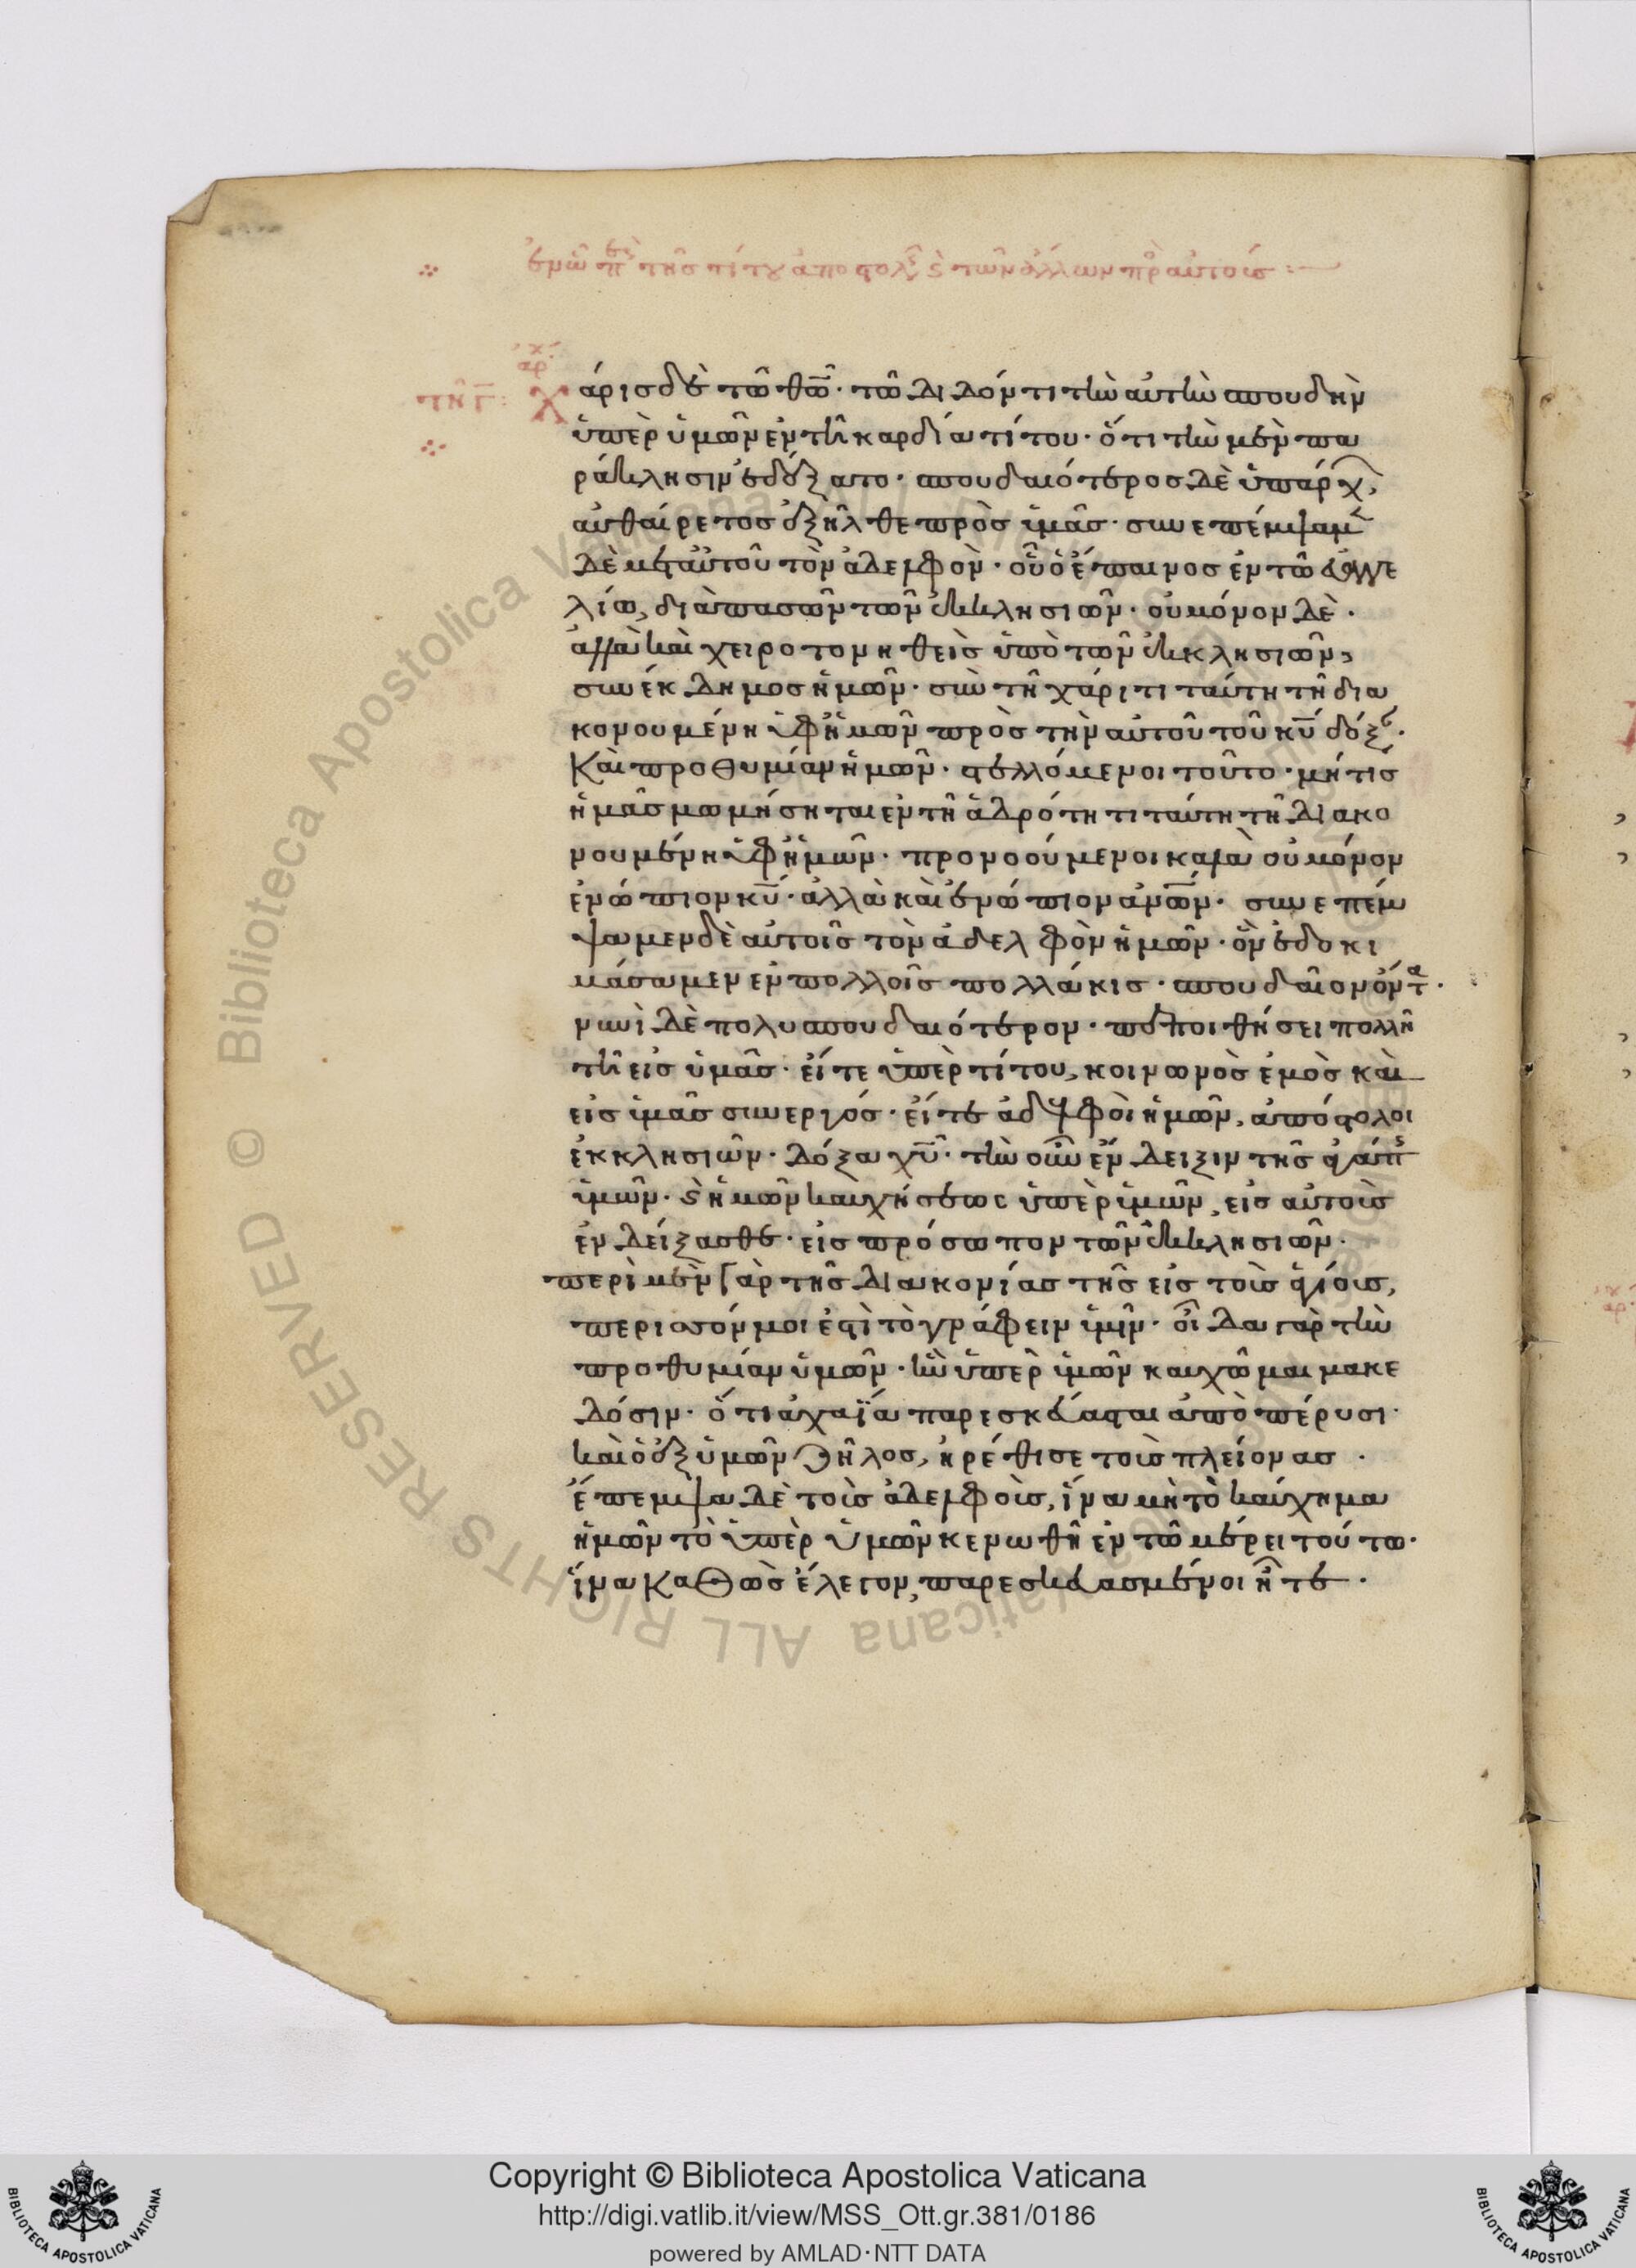 ἐν ᾧ περὶ τῆς τίτου ἀποστολῆς καὶ τῶν ἄλλων πρὸ αὐτοῖς :—
ἀρ
τῇ γ̅ :
Χάρις δὲ τῶ θω̅· τῶ διδόντι τὴν αὐτὴν σπουδὴν
ὑπὲρ ὑμῶν ἐν τῆ καρδία τίτου· ὅτι τὴν μὲν πα
ράκλησιν ἐδέξατο· σπουδαιότερος δὲ ὑπάρχ,
αὐθαίρετος ἐξῆλθε πρὸς ὑμᾶς· συνεπέμψαμ
δὲ μετ αὐτοῦ τὸν ἀδελφὸν· οὗ ὁ ἔπαινος ἐν τῶ εὐαγγε
λίω, διὰ πασῶν τῶν ἐκκλησιῶν· οὐ μόνον δὲ·
ἀλλὰ καὶ χειροτονηθεὶς ὑπὸ τῶν ἐκκλησιῶν,
συνέκδημος ἡμῶν· σὺν τῆ χάριτι ταύτη τῆ δια
κονουμένη ὑφ ἡμῶν πρὸς τὴν αὐτοῦ τοῦ κυ̅ δόξ·
Καὶ προθυμίαν ἡμῶν· στελλόμενοι τοῦτο· μή τις
ἡμᾶς μωμήσηται ἐν τῆ ἁδρότητι ταύτη τῆ διακο
νουμένη ὑφ ἡμῶν· προνοούμενοι καλὰ οὐ μόνον
ἐνώπιον κυ̅· ἀλλὰ καὶ ἐνώπιον ἀνω̅ν· συνεπέμ
ψαμεν δὲ αὐτοῖς τὸν ἀδελφὸν ἡμῶν· ὃν ἐδοκι
μάσαμεν ἐν πολλοῖς πολλάκις· σπουδαῖον ὄντα·
νυνὶ δὲ πολυ σπουδαιότερον· πεποιθήσει πολλῆ
τῆ εἰς ὑμᾶς· εἴτε ὑπὲρ τίτου, κοινωνὸς ἐμὸς καὶ
εἰς ὑμᾶς συνεργός· εἴτε ἀδελφοὶ ἡμῶν, ἀπόστολοι
ἐκκλησιῶν· δόξα χυ̅· τὴν οὖν ἔνδειξιν τῆς ἀγάπης
ὑμῶν· καὶ ἡμῶν καυχήσεως ὑπὲρ ὑμῶν, εἰς αὐτοὺς
ἐνδείξασθε· εἰς πρόσωπον τῶν ἐκκλησιῶν·
περὶ μὲν γὰρ τῆς διακονίας τῆς εἰς τοὺς ἁγίους,
περισσόν μοι ἐστὶ τὸ γράφειν ὑμῖν· οἶδα γὰρ τὴν
προθυμίαν ὑμῶν· ἣν ὑπὲρ ὑμῶν καυχῶμαι μακε
δόσιν· ὅτι ἀχαΐα παρεσκεύασται ἀπὸ πέρυσι·
καὶ ὁ ἐξ ὑμῶν ζῆλος, ἠρέθισε τοὺς πλείονας ·
ἔπεμψα δὲ τοὺς ἀδελφοὺς, ἵνα μὴ τὸ καύχημα
ἡμῶν τὸ ὑπὲρ ὑμῶν κενωθῆ ἐν τῶ μέρει τούτω·
ἵνα καθὼς ἔλεγον, παρεσκευασμένοι ἦτε ·
Copyright © Biblioteca Apostolica Vaticana
http://digi.vatlib.it/view/MSS_Ott.gr.381/0186
powered by AMLAD·NTT DATA
BIBLIOTECA APOSTOLICA VATICANA
BIBLIOTECA APOSTOLICA VATICANA